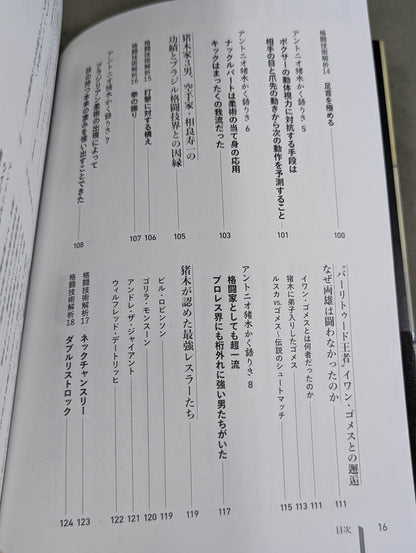 格闘技術解析14 足首を極める 100
アントニオ猪木かく語りき 5
ボクサーの動体視力に対抗する手段は
相手の目と爪先の動きから次の動作を予測すること 101
アントニオ猪木かく語りき 6
ナックルパートは柔術の当て身の応用
キックはまったくの我流だった 103
猪木家3男、空手家・相良寿一の
功績とブラジル格闘技界との因縁 105
格闘技術解析15 打撃に対する構え 106
格闘技術解析16 拳の握り 107
アントニオ猪木かく語りき 7
ブラジリアン柔術の出現によって
技の持つ本来の凄みを思い出すことできた 108
“バーリトゥード王者”イワン・ゴメスとの邂逅
なぜ両雄は闘わなかったのか 111
イワン・ゴメスとは何者だったのか 111
猪木に弟子入りしたゴメス 113
ルスカ vs.ゴメス〜伝説のシュートマッチ 115
アントニオ猪木かく語りき 8
格闘家としても超一流
プロレス界にも桁外れに強い男たちがいた 117
猪木が認めた最強レスラーたち 119
ビル・ロビンソン 119
ゴリラ・モンスーン 120
アンドレ・ザ・ジャイアント 121
ウィルフレッド・デートリッヒ 122
格闘技術解析17 ネックチャンスリー 123
格闘技術解析18 ダブルリストロック 124
目次 16